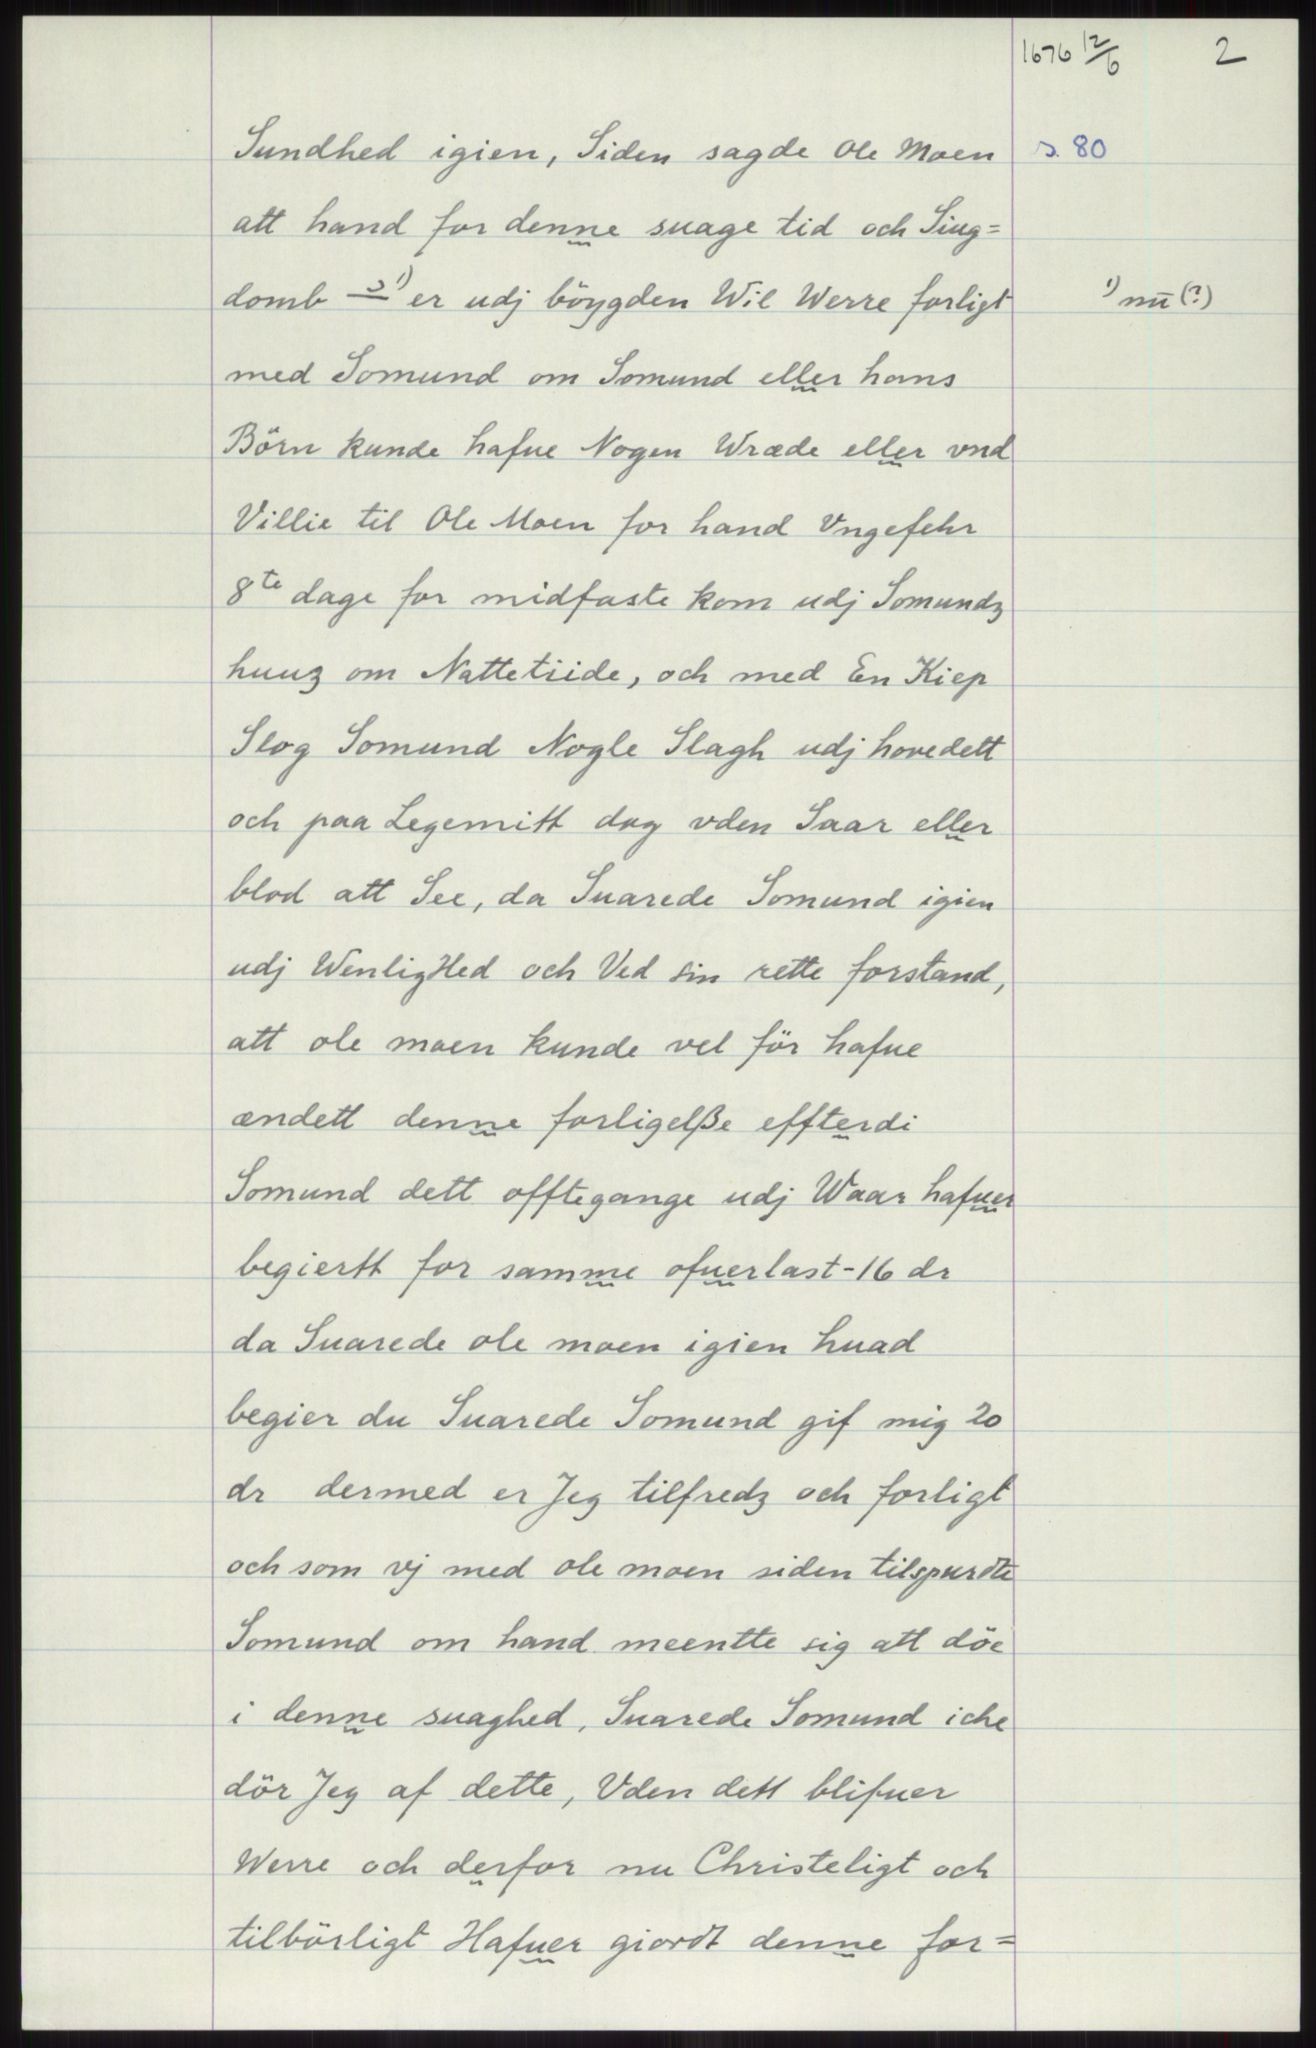 1676 12/6 2
Sundhed igien, Siden sagde Ole Moen s. 80
att hand for denne suage tid och Siug=
domb — 1) er udj böygden Wil Werre forligt 1) nū (?)
med Somund om Somund eller hans
Börn kunde hafue Nogen Wræde eller vnd
Villie til Ole Moen for hand Vngefehr
8te dage for midfaste kom udj Somundz
huuz om Nattetiide, och med En Kiep
Slog Somund Nogle Slagh udj hovedett
och paa Legemitt dog vden Saar eller
blod att See, da Suarede Somund igien
udj WenligHed och Ved sin rette forstand,
att ole moen kunde vel för hafue
ændett denne forligelße effterdi
Somund dett offtegange udj Waar hafuer
begiertt for samme ofuerlast-16 dr
da Suarede ole moen igien huad
begier du Suarede Somund gif mig 20
dr dermed er Jeg tilfredz och forligt
och som vj med ole moen siden tilspurdte
Somund om hand meentte sig att döe
i denne suaghed, Suarede Somund iche
dör Jeg af dette, Vden dett blifuer
Werre och derfor nu Christeligt och
tilbörligt Hafuer giordt denne for=